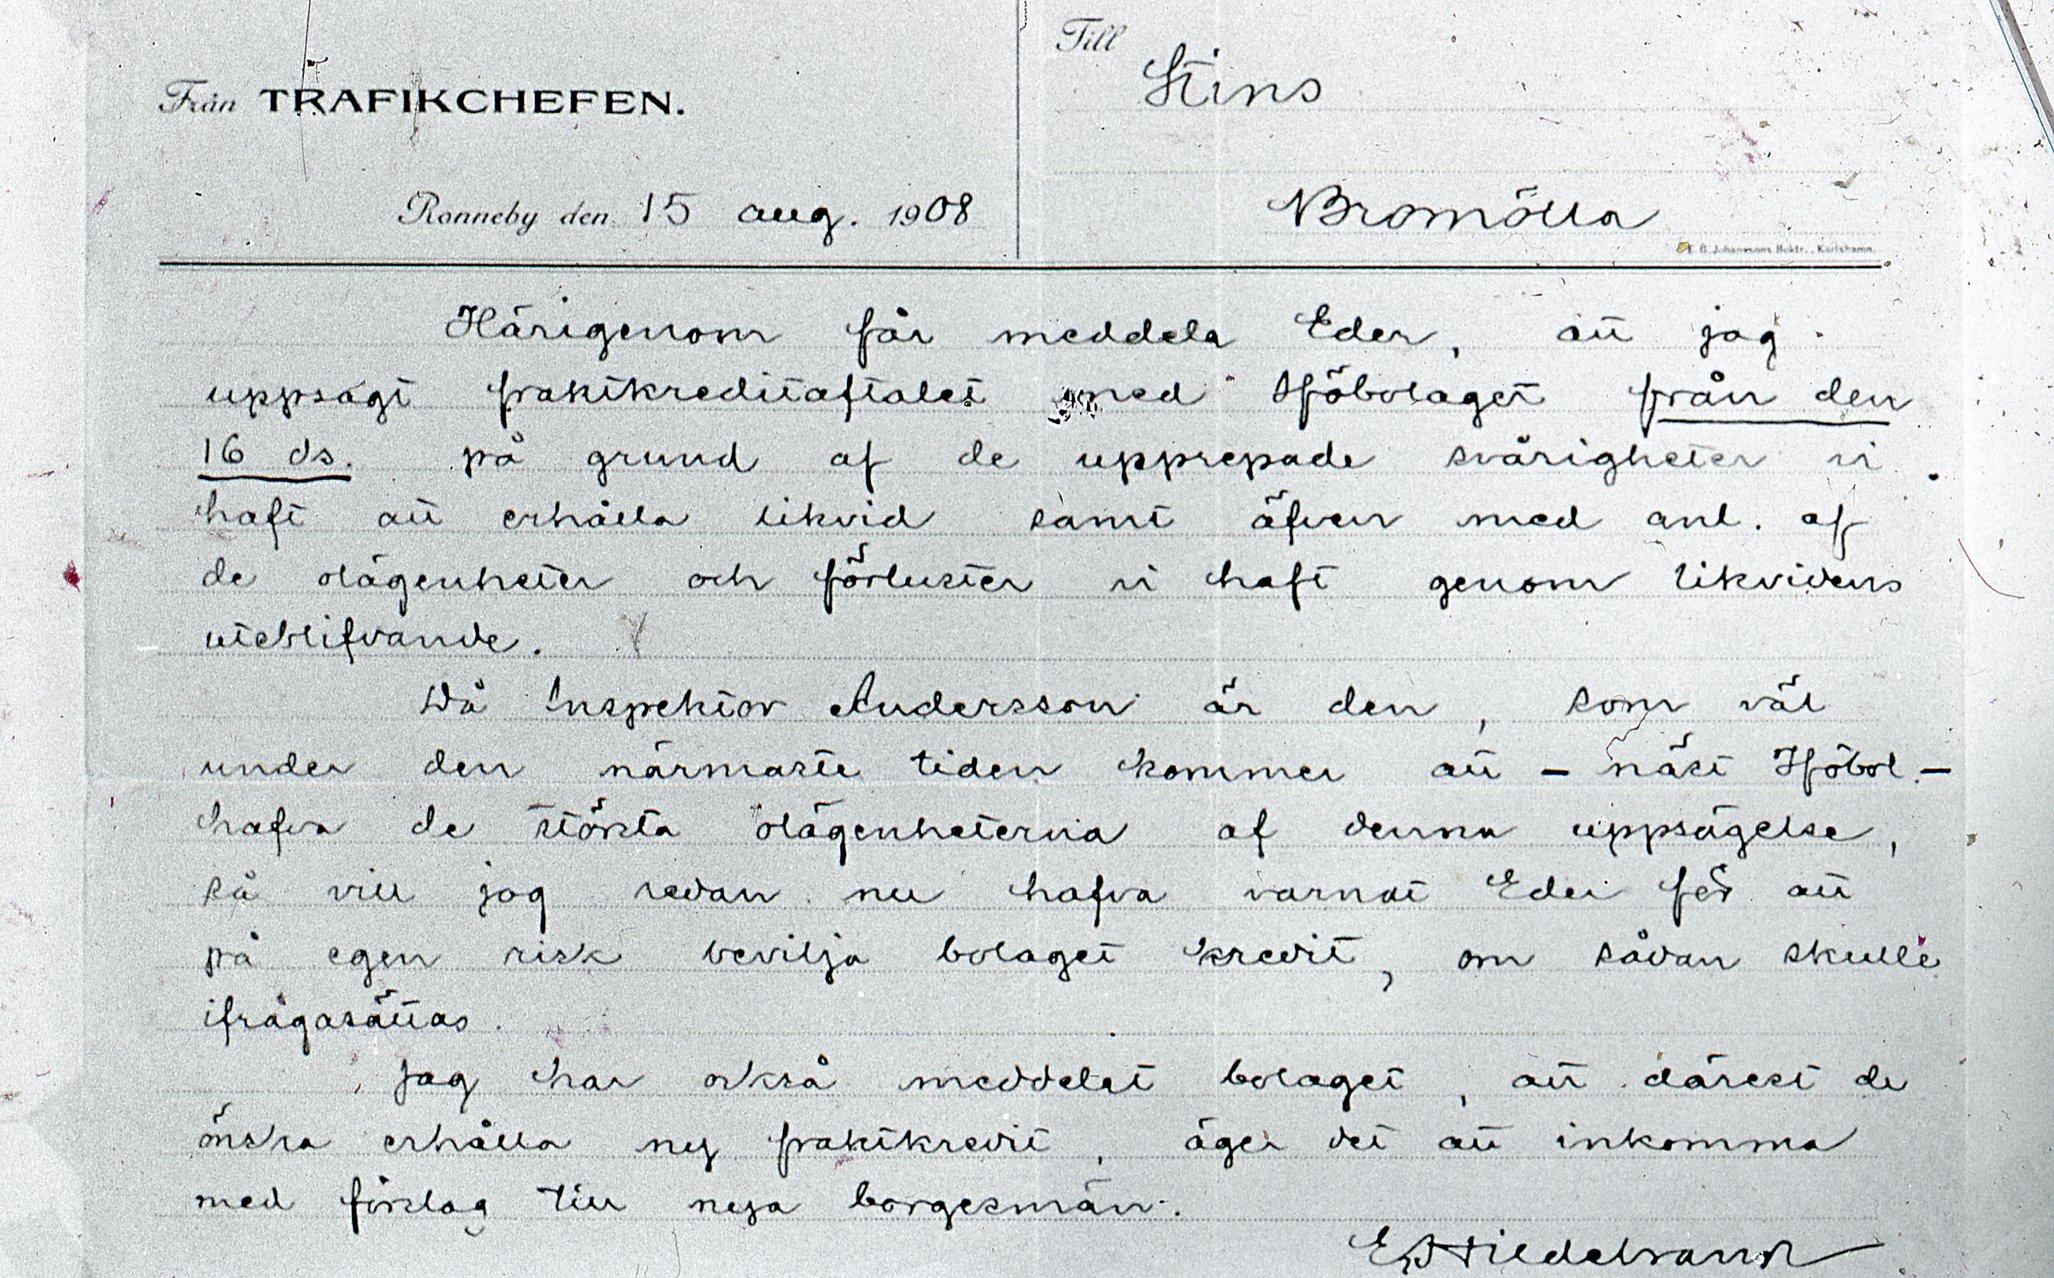 Från TRAFIKCHEFEN.
Till Stins
Ronneby den 15 aug. 1908
Bromölla
E. G. Johanssons Boktr., Karlshamn.
Härigenom får meddela Eder, att jag
uppsagt fraktkreditaftalet med Iföbolaget från den
16 ds. på grund af de upprepade svårigheter vi
haft att erhålla likvid samt äfven med anl. af
de olägenheter och förluster vi haft genom likvidens
uteblifvande.
Då Inspektor Andersson är den, som väl
under den närmaste tiden kommer att – näst Iföbol. –
hafva de största olägenheterna af denna uppsägelse,
så vill jag redan nu hafva varnat Eder för att
på egen risk bevilja bolaget kredit, om sådan skulle
ifrågasättas.
Jag har också meddelat bolaget, att därest de
önska erhålla ny fraktkredit, äger det att inkomma
med förslag till nya borgesmän.
Hildebrand